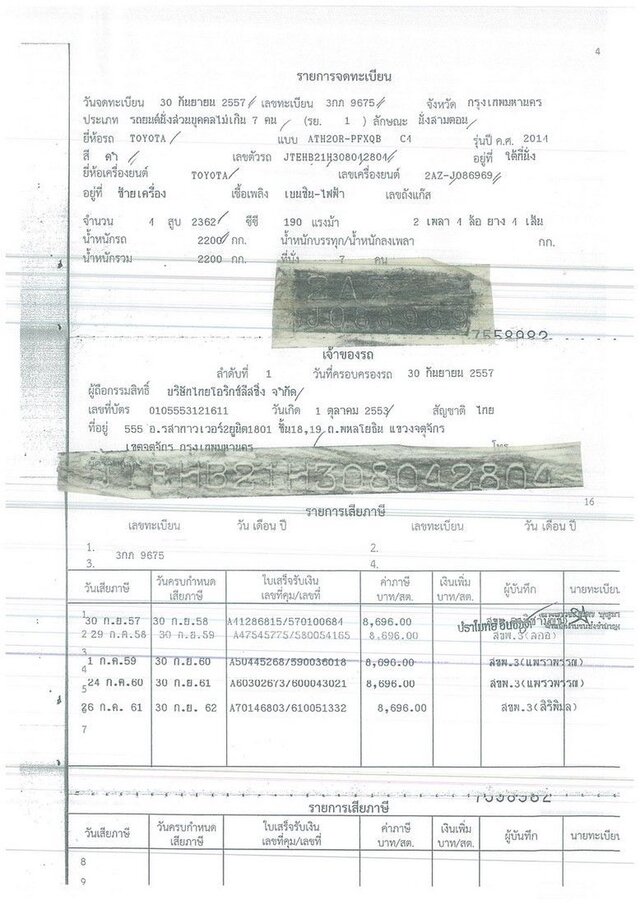 4
รายการจดทะเบียน
วันจดทะเบียน 30 กันยายน 2557 เลขทะเบียน 3กภ 9675 จังหวัด กรุงเทพมหานคร
ประเภท รถยนต์นั่งส่วนบุคคลไม่เกิน 7 คน (รย. 1 ) ลักษณะ นั่งสามตอน
ยี่ห้อรถ TOYOTA แบบ ATH20R-PFXQB C4 รุ่นปี ค.ศ. 2014
สี ดำ เลขตัวรถ JTEHB21H308042804 อยู่ที่ ใต้ที่นั่ง
ยี่ห้อเครื่องยนต์ TOYOTA เลขเครื่องยนต์ 2AZ-J086969
อยู่ที่ ซ้ายเครื่อง เชื้อเพลิง เบนซิน-ไฟฟ้า เลขถังแก๊ส
จำนวน 4 สูบ 2362 ซีซี 190 แรงม้า 2 เพลา 4 ล้อ ยาง 4 เส้น
น้ำหนักรถ 2200 กก. น้ำหนักบรรทุก/น้ำหนักลงเพลา กก.
น้ำหนักรวม 2200 กก. ที่นั่ง 7 คน
2A
เจ้าของรถ
ลำดับที่ 1 วันที่ครอบครองรถ 30 กันยายน 2557
ผู้ถือกรรมสิทธิ์ บริษัทไทยโอริกซ์ลีสซิ่ง จำกัด
เลขที่บัตร 0105553121611 วันเกิด 1 ตุลาคม 2553 สัญชาติ ไทย
ที่อยู่ 555 อ.รสาทาวเวอร์2ยูนิต1801 ชั้น18,19 ถ.พหลโยธิน แขวงจตุจักร
เขตจตุจักร กรุงเทพมหานคร โทร
JTEHB21H308042804
16
รายการเสียภาษี
เลขทะเบียน วัน เดือน ปี เลขทะเบียน วัน เดือน ปี
1. 2.
3. 3กภ 9675 4.
วันเสียภาษี วันครบกำหนดเสียภาษี ใบเสร็จรับเงิน เลขที่คุม/เลขที่ ค่าภาษี บาท/สต. เงินเพิ่ม บาท/สต. ผู้บันทึก นายทะเบียน
1 30 ก.ย.57 30 ก.ย.58 A41286815/570100684 8,696.00
2 29 ก.ค.58 30 ก.ย.59 A47545775/580054165 8,696.00 สขพ.3
3
4 1 ก.ค.59 30 ก.ย.60 A50445268/590036018 8,696.00 สขพ.3(แพรวพรรณ)
5 24 ก.ค.60 30 ก.ย.61 A60302673/600043021 8,696.00 สขพ.3(แพรวพรรณ)
26 ก.ค. 61 30 ก.ย. 62 A70146803/610051332 8,696.00 สขพ.3(สิริพิมล)
7
รายการเสียภาษี
วันเสียภาษี วันครบกำหนดเสียภาษี ใบเสร็จรับเงิน เลขที่คุม/เลขที่ ค่าภาษี บาท/สต. เงินเพิ่ม บาท/สต. ผู้บันทึก นายทะเบียน
8
9